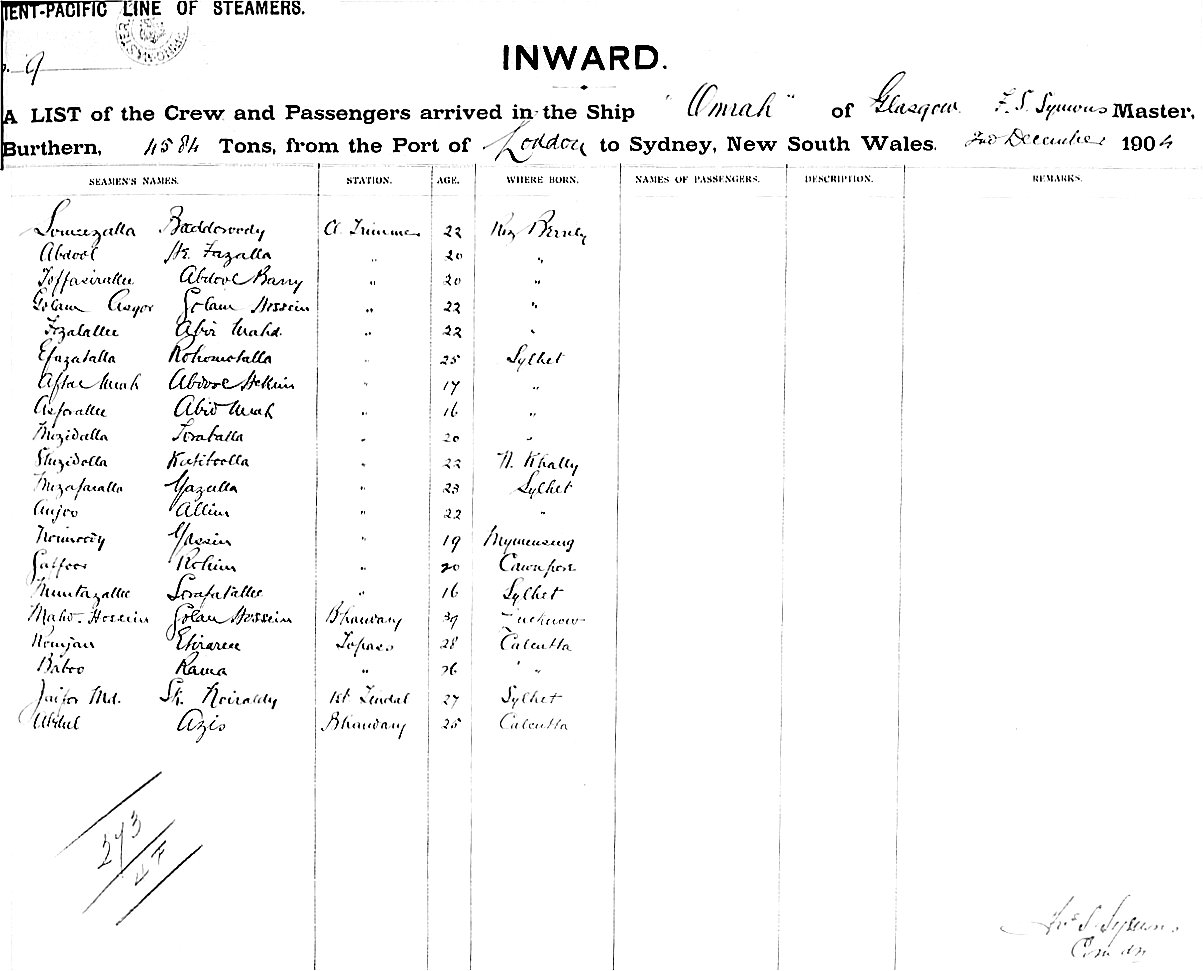 IENT-PACIFIC LINE OF STEAMERS.
9
INWARD.
A LIST of the Crew and Passengers arrived in the Ship "Omrah" of Glasgow F. S. Symons Master,
Burthern, 4584 Tons, from the Port of London to Sydney, New South Wales. 2nd December 1904
SEAMEN'S NAMES. STATION. AGE. WHERE BORN. NAMES OF PASSENGERS. DESCRIPTION. REMARKS.
Baddoroody Cl. Trimmer 22
Abdool Sk. Fazalla " 20 "
Toffasirallee Abdool Barry " 20 "
Golam Asgor Golam Hossein " 22 "
Fozalallee Abir Mahd. " 22 "
Efazatalla Rohomotalla " 25 Sylhet
Aftar Meah Abdool Hekim " 17 "
Asforallee Abid Meah " 16 "
Mozidalla Torabolla " 20 "
Shazidolla Kutiboolla " 22 N. Khally
Mozafaralla Yazulla " 23 Sylhet
Anjoo Allim " 22 "
Nomoody Yassin " 19 Mymensing
Gaffoor Rohim " 20 Cawnpore
Muntazallee Sorafatallee " 16 Sylhet
Mahd. Hossein Golam Hossein Bhandary 39 Lucknow
Romjan Etwaree Topass 28 Calcutta
Baboo Rama " 26 " "
Jaifor Md. Sk. Noiraddy 1st Tindal 27 Sylhet
Abdul Azis Bhandary 25 Calcutta
273
Fr. S. Symons
Comdr